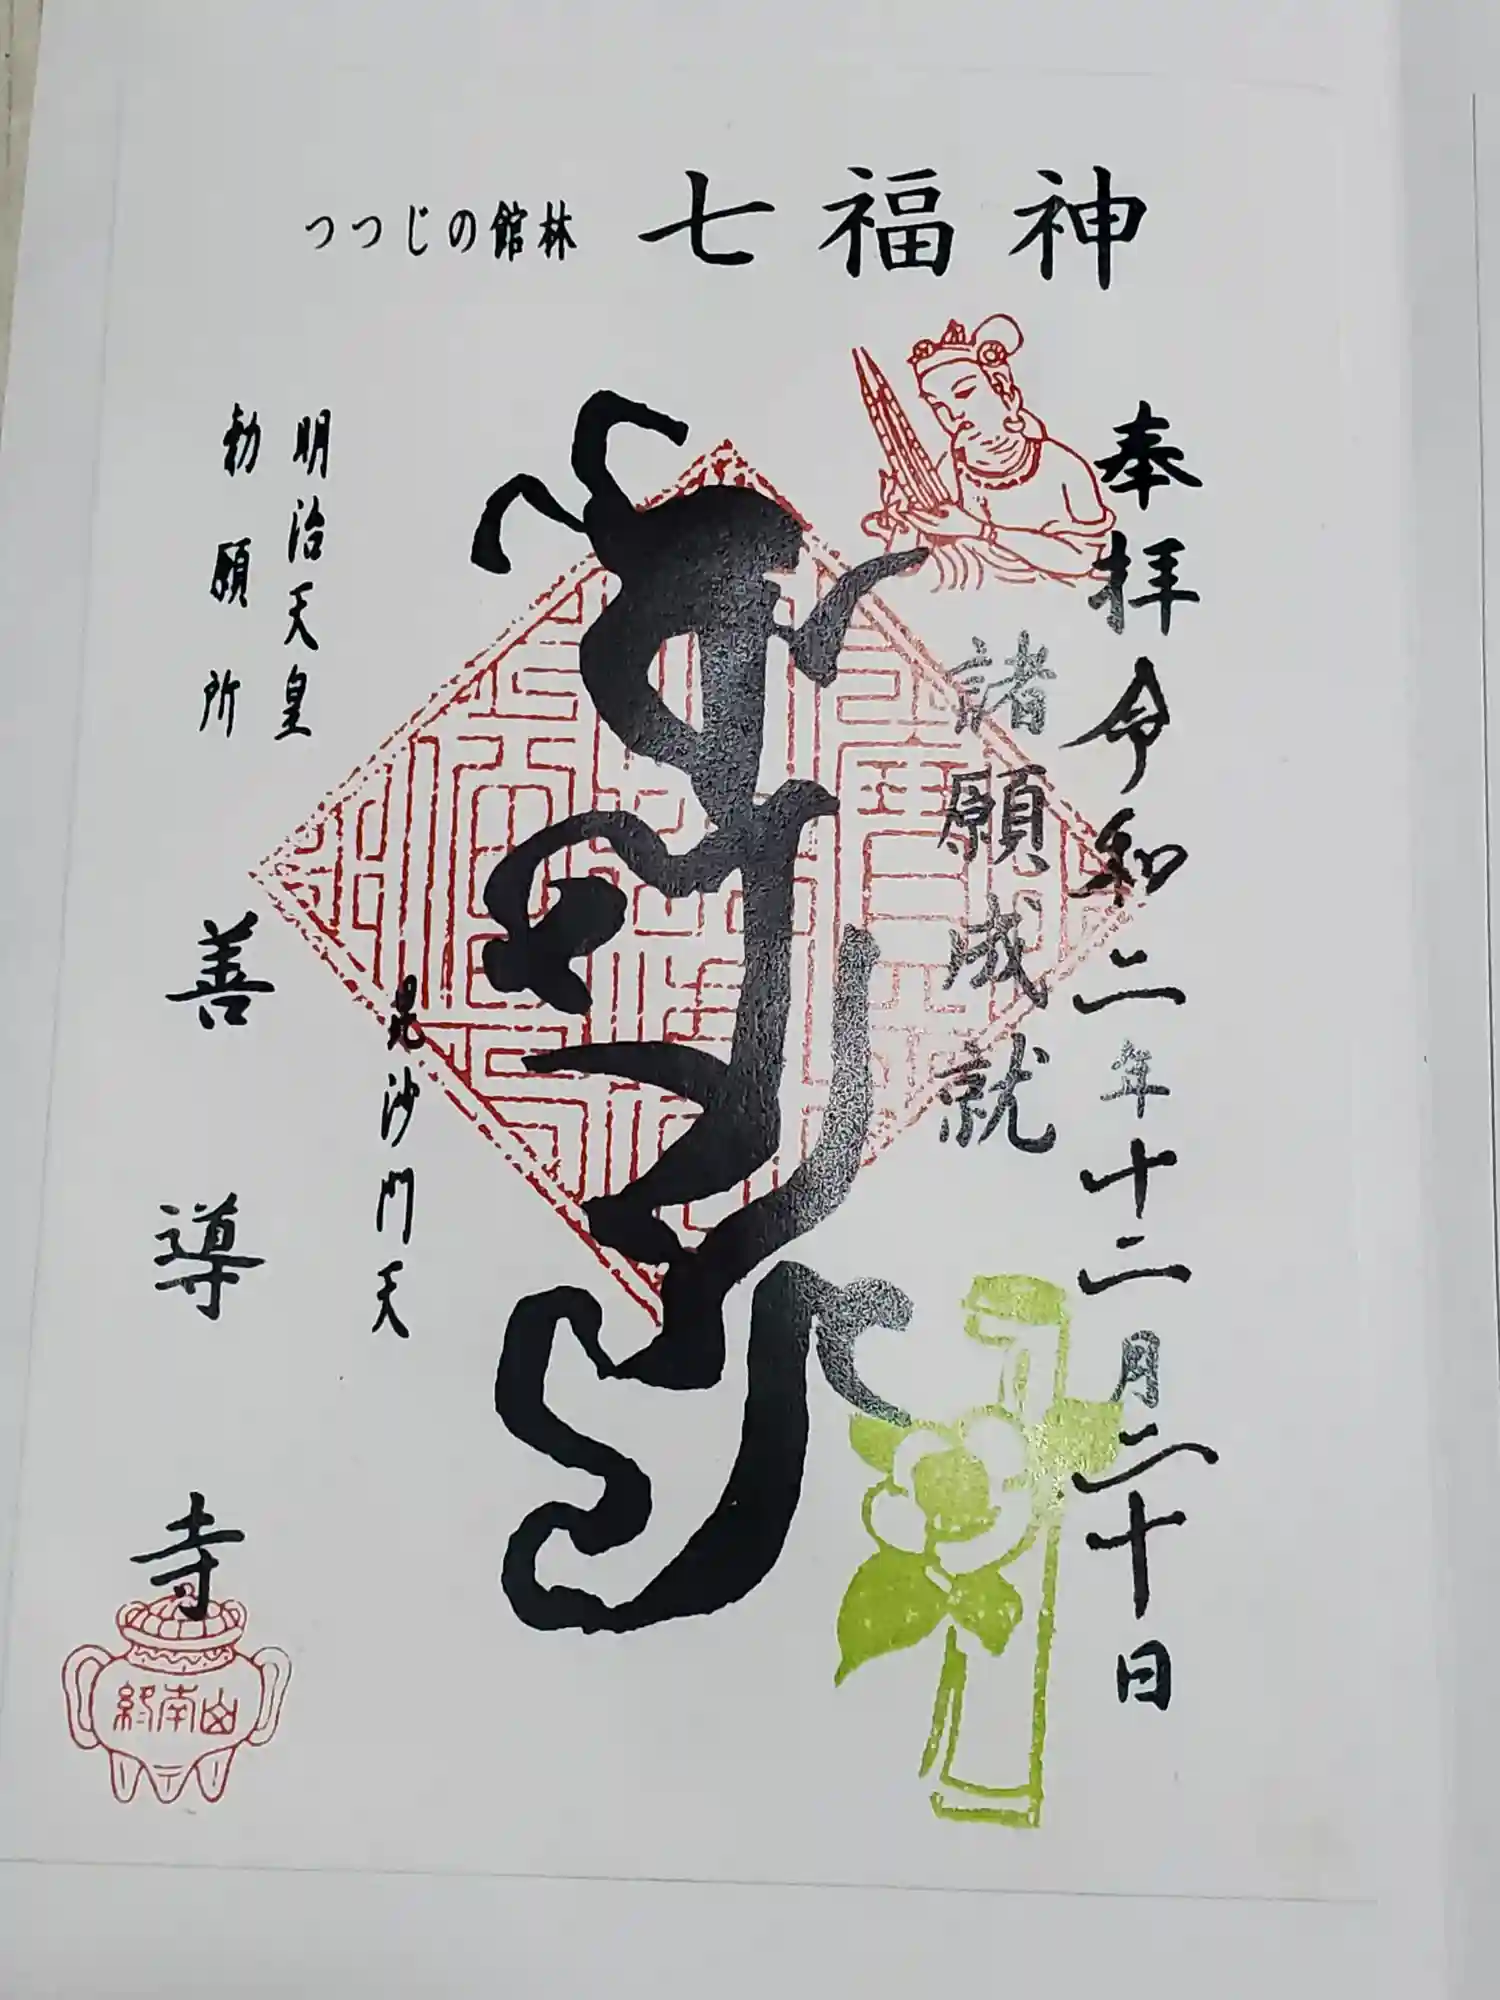 つつじの館林 七福神
奉拝 令和二年十二月二十日
諸願成就
毘沙門天
明治天皇
勅願所
善導寺
終南山